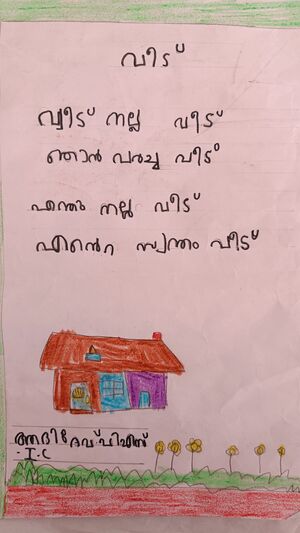 വീട്
വീട് നല്ല വീട്
ഞാൻ വരച്ച വീട്
എന്തും നല്ല വീട്
എൻ്റെ സ്വന്തം വീട്
ആദിദേവ്
I.C